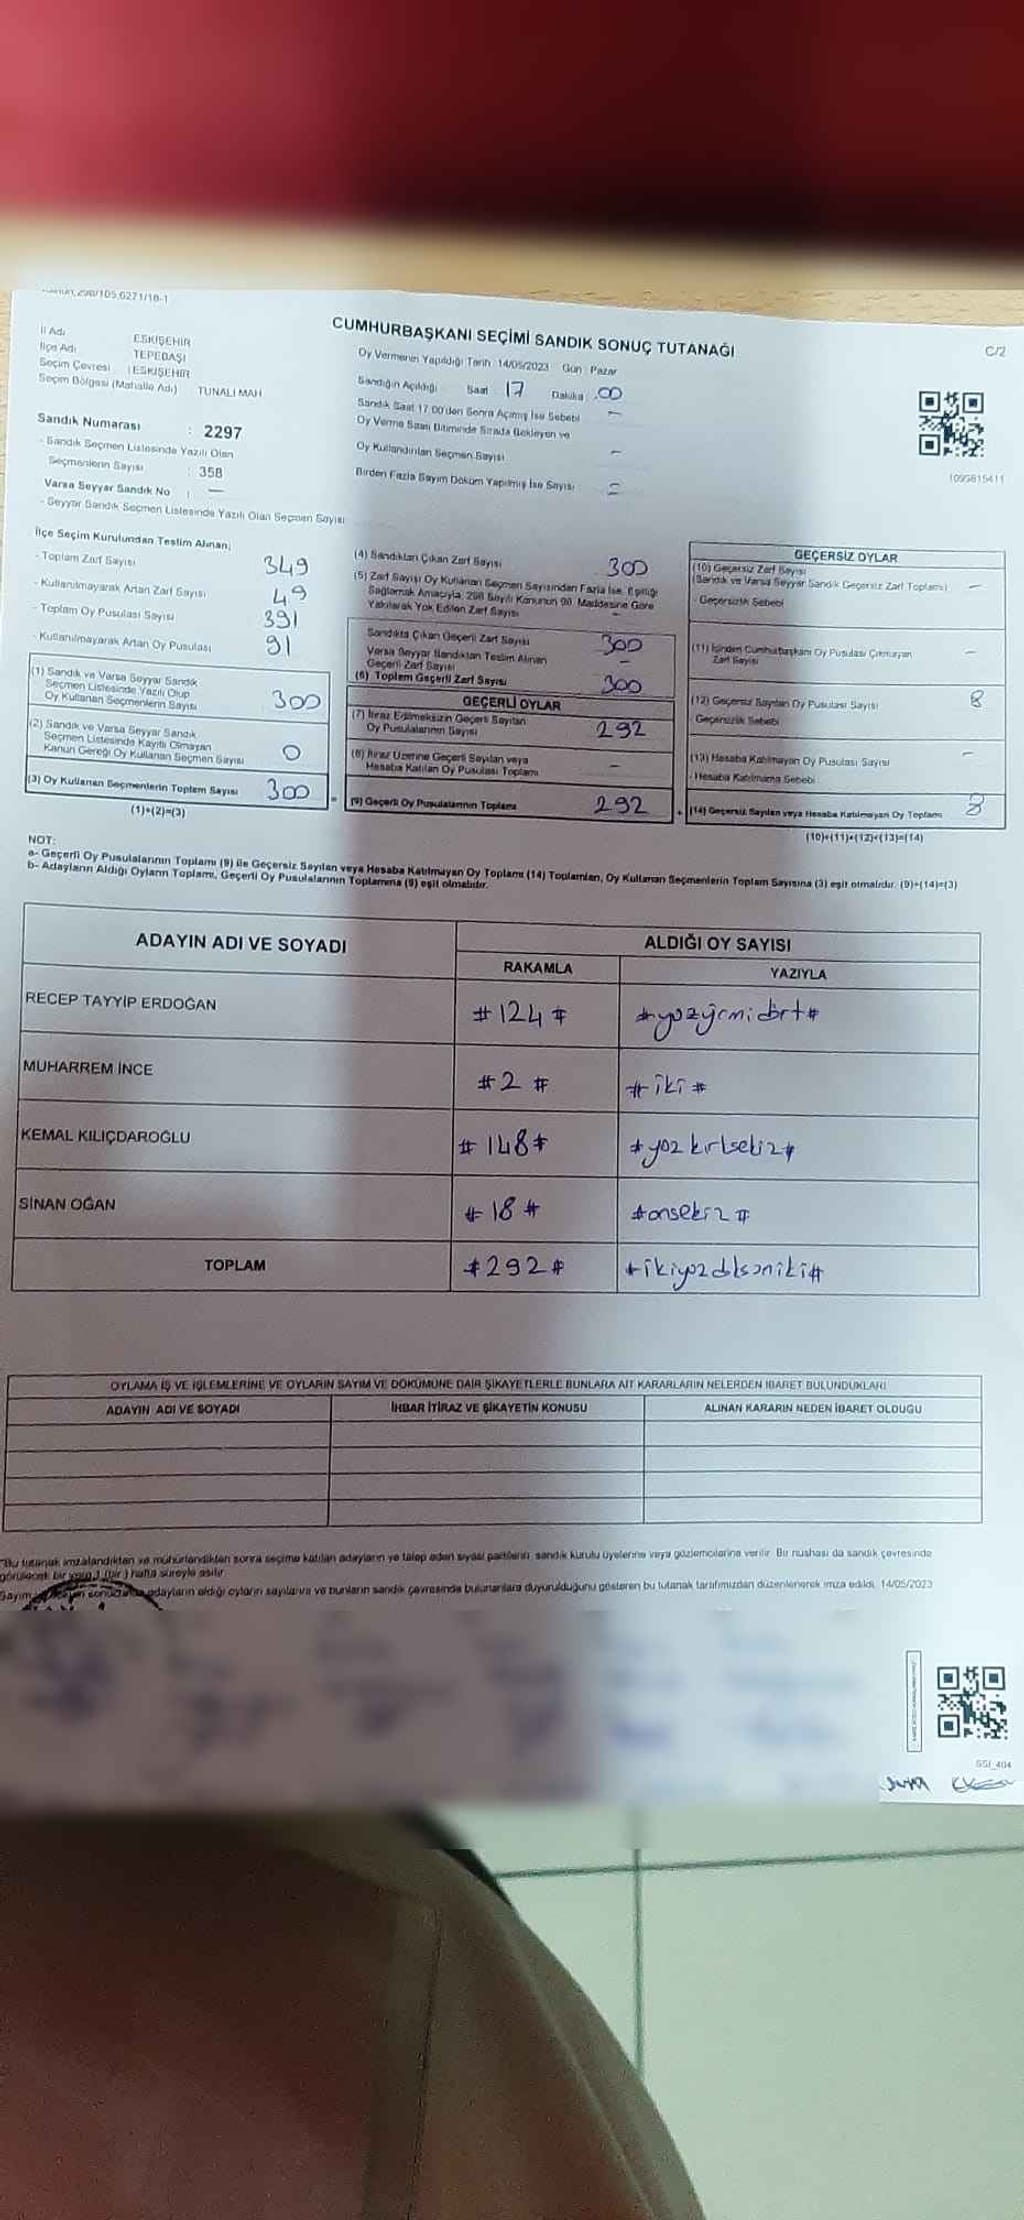 298/105,6271/18-1
CUMHURBAŞKANI SEÇİMİ SANDIK SONUÇ TUTANAĞI
C/2
İl Adı ESKİŞEHİR
İlçe Adı TEPEBAŞI
Seçim Çevresi : ESKİŞEHİR
Seçim Bölgesi (Mahalle Adı) TUNALI MAH
Sandık Numarası : 2297
- Sandık Seçmen Listesinde Yazılı Olan
Seçmenlerin Sayısı : 358
Varsa Seyyar Sandık No : —
- Seyyar Sandık Seçmen Listesinde Yazılı Olan Seçmen Sayısı
Oy Vermenin Yapıldığı Tarih 14/05/2023 Gün : Pazar
Sandığın Açıldığı Saat 17 Dakika : 00
Sandık Saat 17.00'den Sonra Açılmış İse Sebebi –
Oy Verme Saati Bitiminde Sırada Bekleyen ve
Oy Kullandırılan Seçmen Sayısı –
Birden Fazla Sayım Döküm Yapılmış İse Sayısı
1095815411
İlçe Seçim Kurulundan Teslim Alınan;
- Toplam Zarf Sayısı 349
- Kullanılmayarak Artan Zarf Sayısı 49
- Toplam Oy Pusulası Sayısı 391
- Kullanılmayarak Artan Oy Pusulası 91
(1) Sandık ve Varsa Seyyar Sandık
Seçmen Listesinde Yazılı Olup
Oy Kullanan Seçmenlerin Sayısı 300
(2) Sandık ve Varsa Seyyar Sandık
Seçmen Listesinde Kayıtlı Olmayan
Kanun Gereği Oy Kullanan Seçmen Sayısı 0
(3) Oy Kullanan Seçmenlerin Toplam Sayısı 300
(1)+(2)=(3)
(4) Sandıktan Çıkan Zarf Sayısı 300
(5) Zarf Sayısı Oy Kullanan Seçmen Sayısından Fazla İse, Eşitliği
Sağlamak Amacıyla, 298 Sayılı Kanunun 98. Maddesine Göre
Yakılarak Yok Edilen Zarf Sayısı –
Sandıkta Çıkan Geçerli Zarf Sayısı 300
Varsa Seyyar Sandıktan Teslim Alınan
Geçerli Zarf Sayısı –
(6) Toplam Geçerli Zarf Sayısı 300
GEÇERLİ OYLAR
(7) İtiraz Edilmeksizin Geçerli Sayılan
Oy Pusulalarının Sayısı 292
(8) İtiraz Üzerine Geçerli Sayılan veya
Hesaba Katılan Oy Pusulası Toplamı –
(9) Geçerli Oy Pusulalarının Toplamı 292
GEÇERSİZ OYLAR
(10) Geçersiz Zarf Sayısı
(Sandık ve Varsa Seyyar Sandık Geçersiz Zarf Toplamı) –
- Geçersizlik Sebebi
(11) İçinden Cumhurbaşkanı Oy Pusulası Çıkmayan
Zarf Sayısı –
(12) Geçersiz Sayılan Oy Pusulası Sayısı 8
- Geçersizlik Sebebi
(13) Hesaba Katılmayan Oy Pusulası Sayısı –
- Hesaba Katılmama Sebebi
(14) Geçersiz Sayılan veya Hesaba Katılmayan Oy Toplamı 8
(10)+(11)+(12)+(13)=(14)
NOT:
a- Geçerli Oy Pusulalarının Toplamı (9) ile Geçersiz Sayılan veya Hesaba Katılmayan Oy Toplamı (14) Toplamları, Oy Kullanan Seçmenlerin Toplam Sayısına (3) eşit olmalıdır. (9)+(14)=(3)
b- Adayların Aldığı Oyların Toplamı, Geçerli Oy Pusulalarının Toplamına (9) eşit olmalıdır.
ADAYIN ADI VE SOYADI ALDIĞI OY SAYISI
RAKAMLA YAZIYLA
RECEP TAYYİP ERDOĞAN #124# #yüzyirmidört#
MUHARREM İNCE #2# #iki#
KEMAL KILIÇDAROĞLU #148# #yüzkırksekiz#
SİNAN OĞAN #18# #onsekiz#
TOPLAM #292# #ikiyüzdoksaniki#
OYLAMA İŞ VE İŞLEMLERİNE VE OYLARIN SAYIM VE DÖKÜMÜNE DAİR ŞİKAYETLERLE BUNLARA AİT KARARLARIN NELERDEN İBARET BULUNDUKLARI
ADAYIN ADI VE SOYADI İHBAR İTİRAZ VE ŞİKAYETİN KONUSU ALINAN KARARIN NEDEN İBARET OLDUĞU
"Bu tutanak imzalandıktan ve mühürlendikten sonra seçime katılan adayların ve talep eden siyasi partilerin, sandık kurulu üyelerine veya gözlemcilerine verilir. Bir nüshası da sandık çevresinde
görülecek bir yere 1 (bir) hafta süreyle asılır.
adayların aldığı oyların sayılarını ve bunların sandık çevresinde bulunanlara duyurulduğunu gösteren bu tutanak tarafımızdan düzenlenerek imza edildi. 14/05/2023
SSI_404